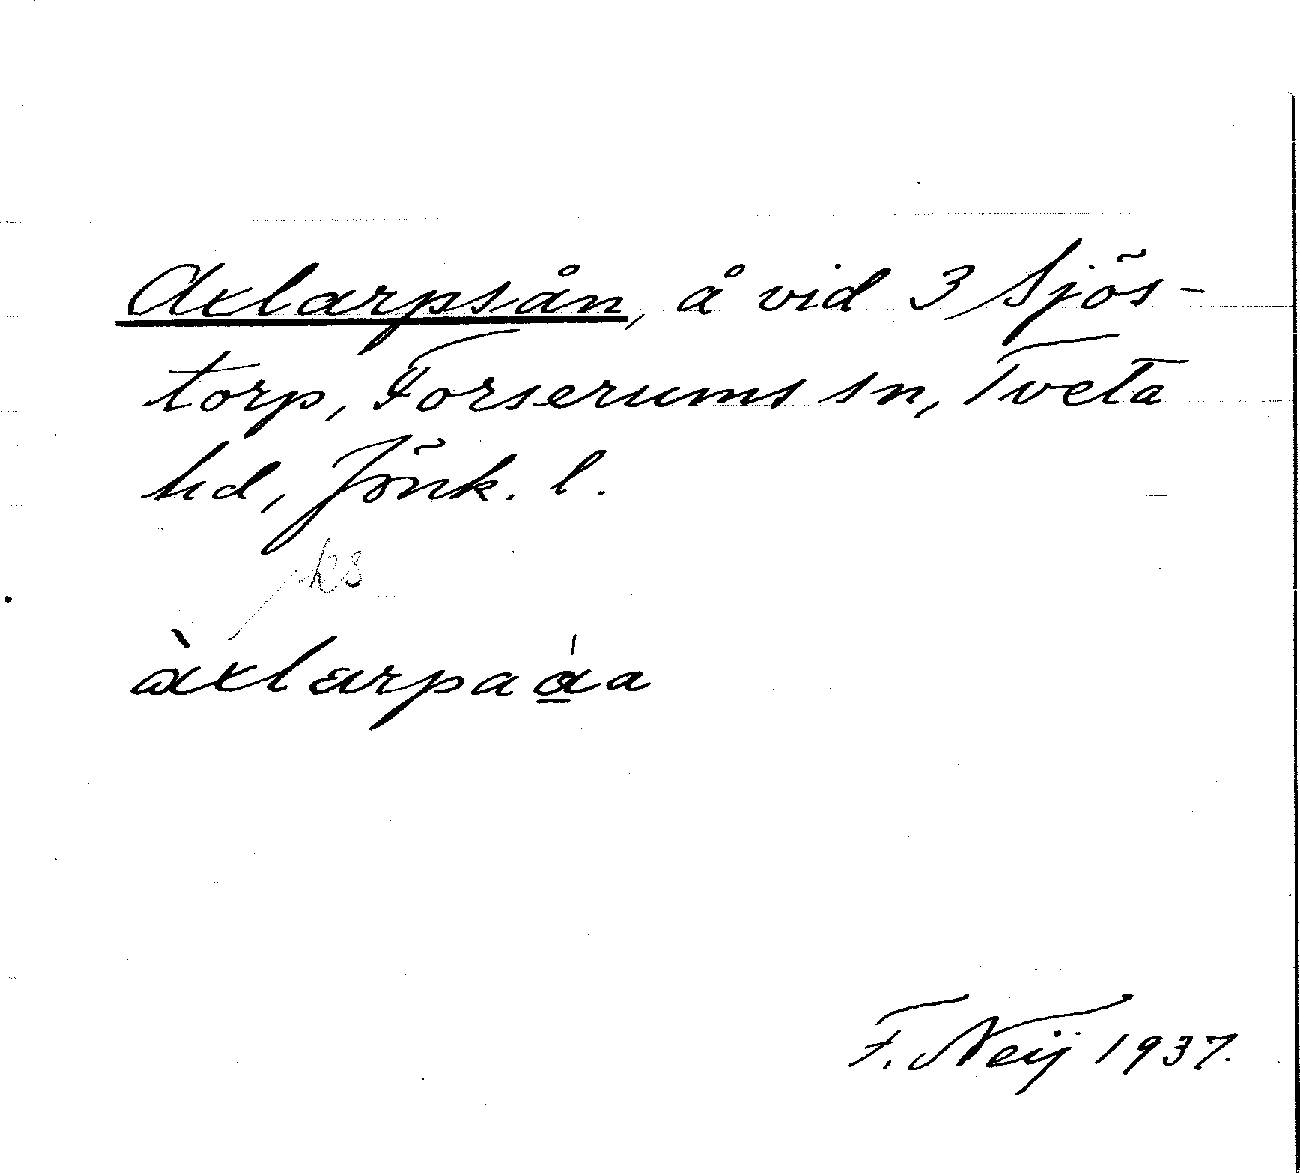 Axlarpsån, å vid 3 Sjös-
torp, Forserums sn, Tveta
hd, Jönk. l.
ks
àxlarpaa̱̍a
F. Neij 1937.